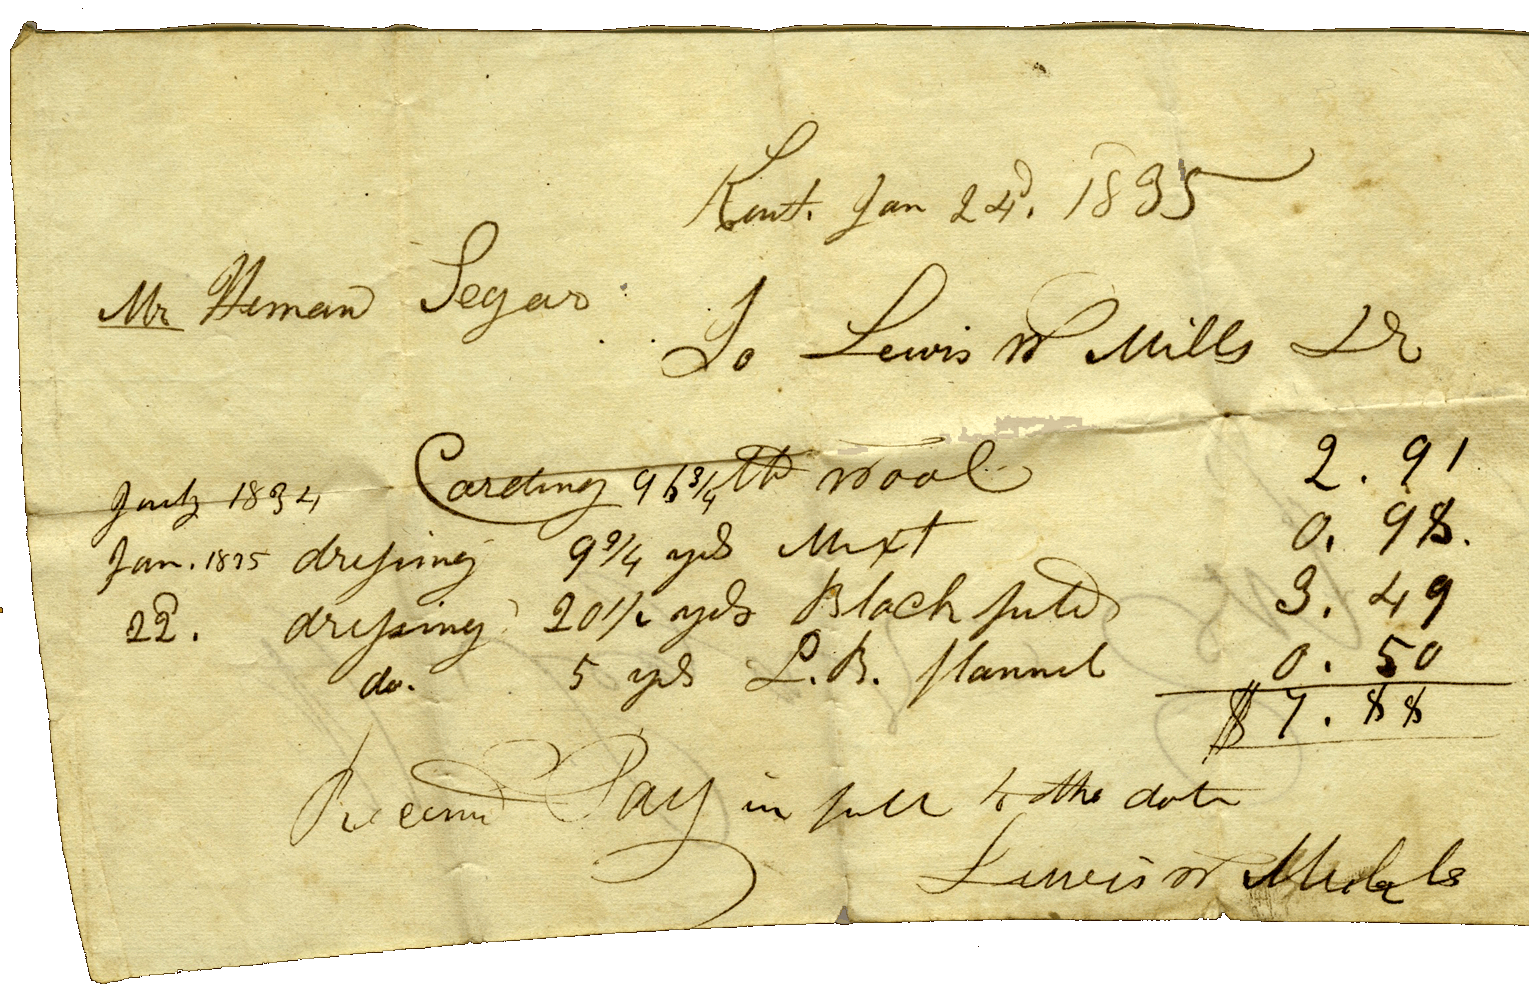 Kent. Jan 24d. 1835
Mr Heman Segar
To Lewis W Mills Dr
July 1834 Carding 9 lb wool 2.91
Jan. 1835 dressing 9 3/4 yds Mixt 0.98.
22. dressing 20 1/2 yds Black 3.49
do. 5 yds L.B. flannel 0.50
$7.88
Receivd Pay in full to the date
Lewis W Mills